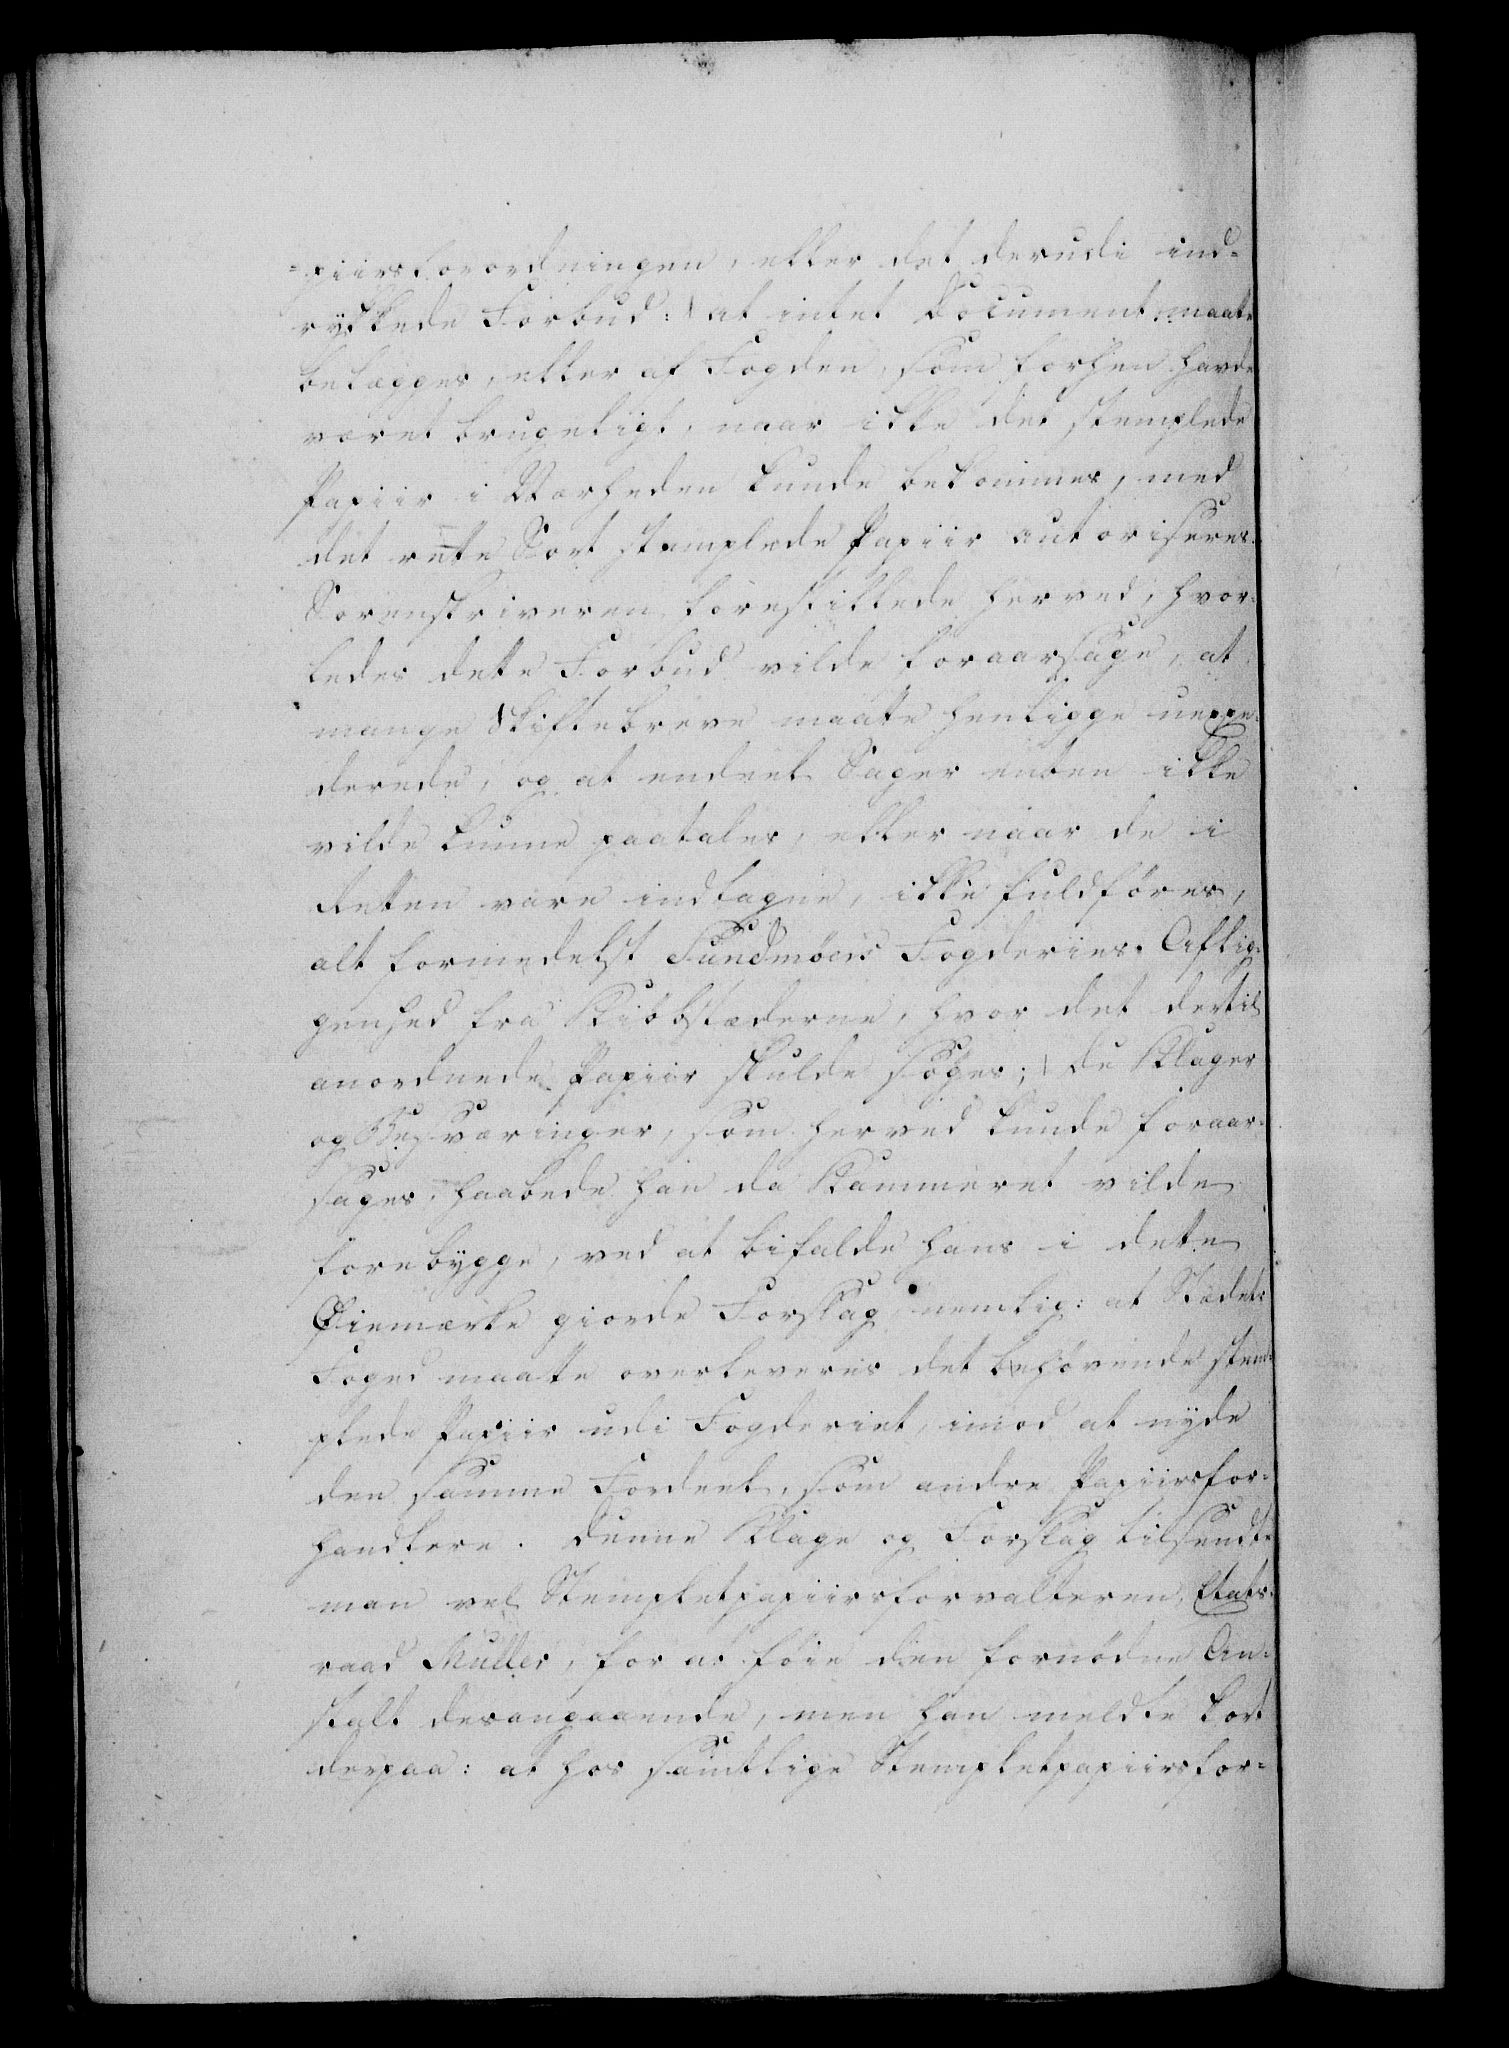 -piirsforordningen, eller det derudi ind-
rykkede Forbud: at intet Document maatte
belægges, eller af Fogden, som forhen havde
været brugeligt, naar ikke det stemplede
Papiir i Nærheden kunde bekommes, med
det rette Sort stemplede Papiir autoriseres.
Sorenskriveren forestillede herved, hvor-
ledes dette Forbud vilde foraarsage, at
mange Skiftebreve maatte henligge uexpe-
derede, og at endeel Sager enten ikke
vilde kunne paatales, eller naar de i
Retten vare indtagne, ikke fuldføres,
alt formedelst Sundmøers Fogderies Aflig-
genhed fra Kiøbstæderne, hvor det dertil
anordnede Papiir skulde søges; de Klager
og Besværinger, som herved kunde foraar-
sages, haabede han da Kammeret vilde
forebygge, ved at bifalde hans i dette
Øiemærke giorde Forslag nemlig: at Stædets
Foged maatte overleveres det behøvende stem-
plede Papiir udi Fogderiet, imod at nyde
den samme Fordeel, som andre Papiirsfor-
handlere. Denne Klage og Forslag tilsendte
man vel Stempletpapiirsforvalteren, Etats-
raad Müller, for at føie den fornødne An-
stalt desangaaende, men han meldte kort
derpaa: at hos samtlige Stempletpapiirsfor-